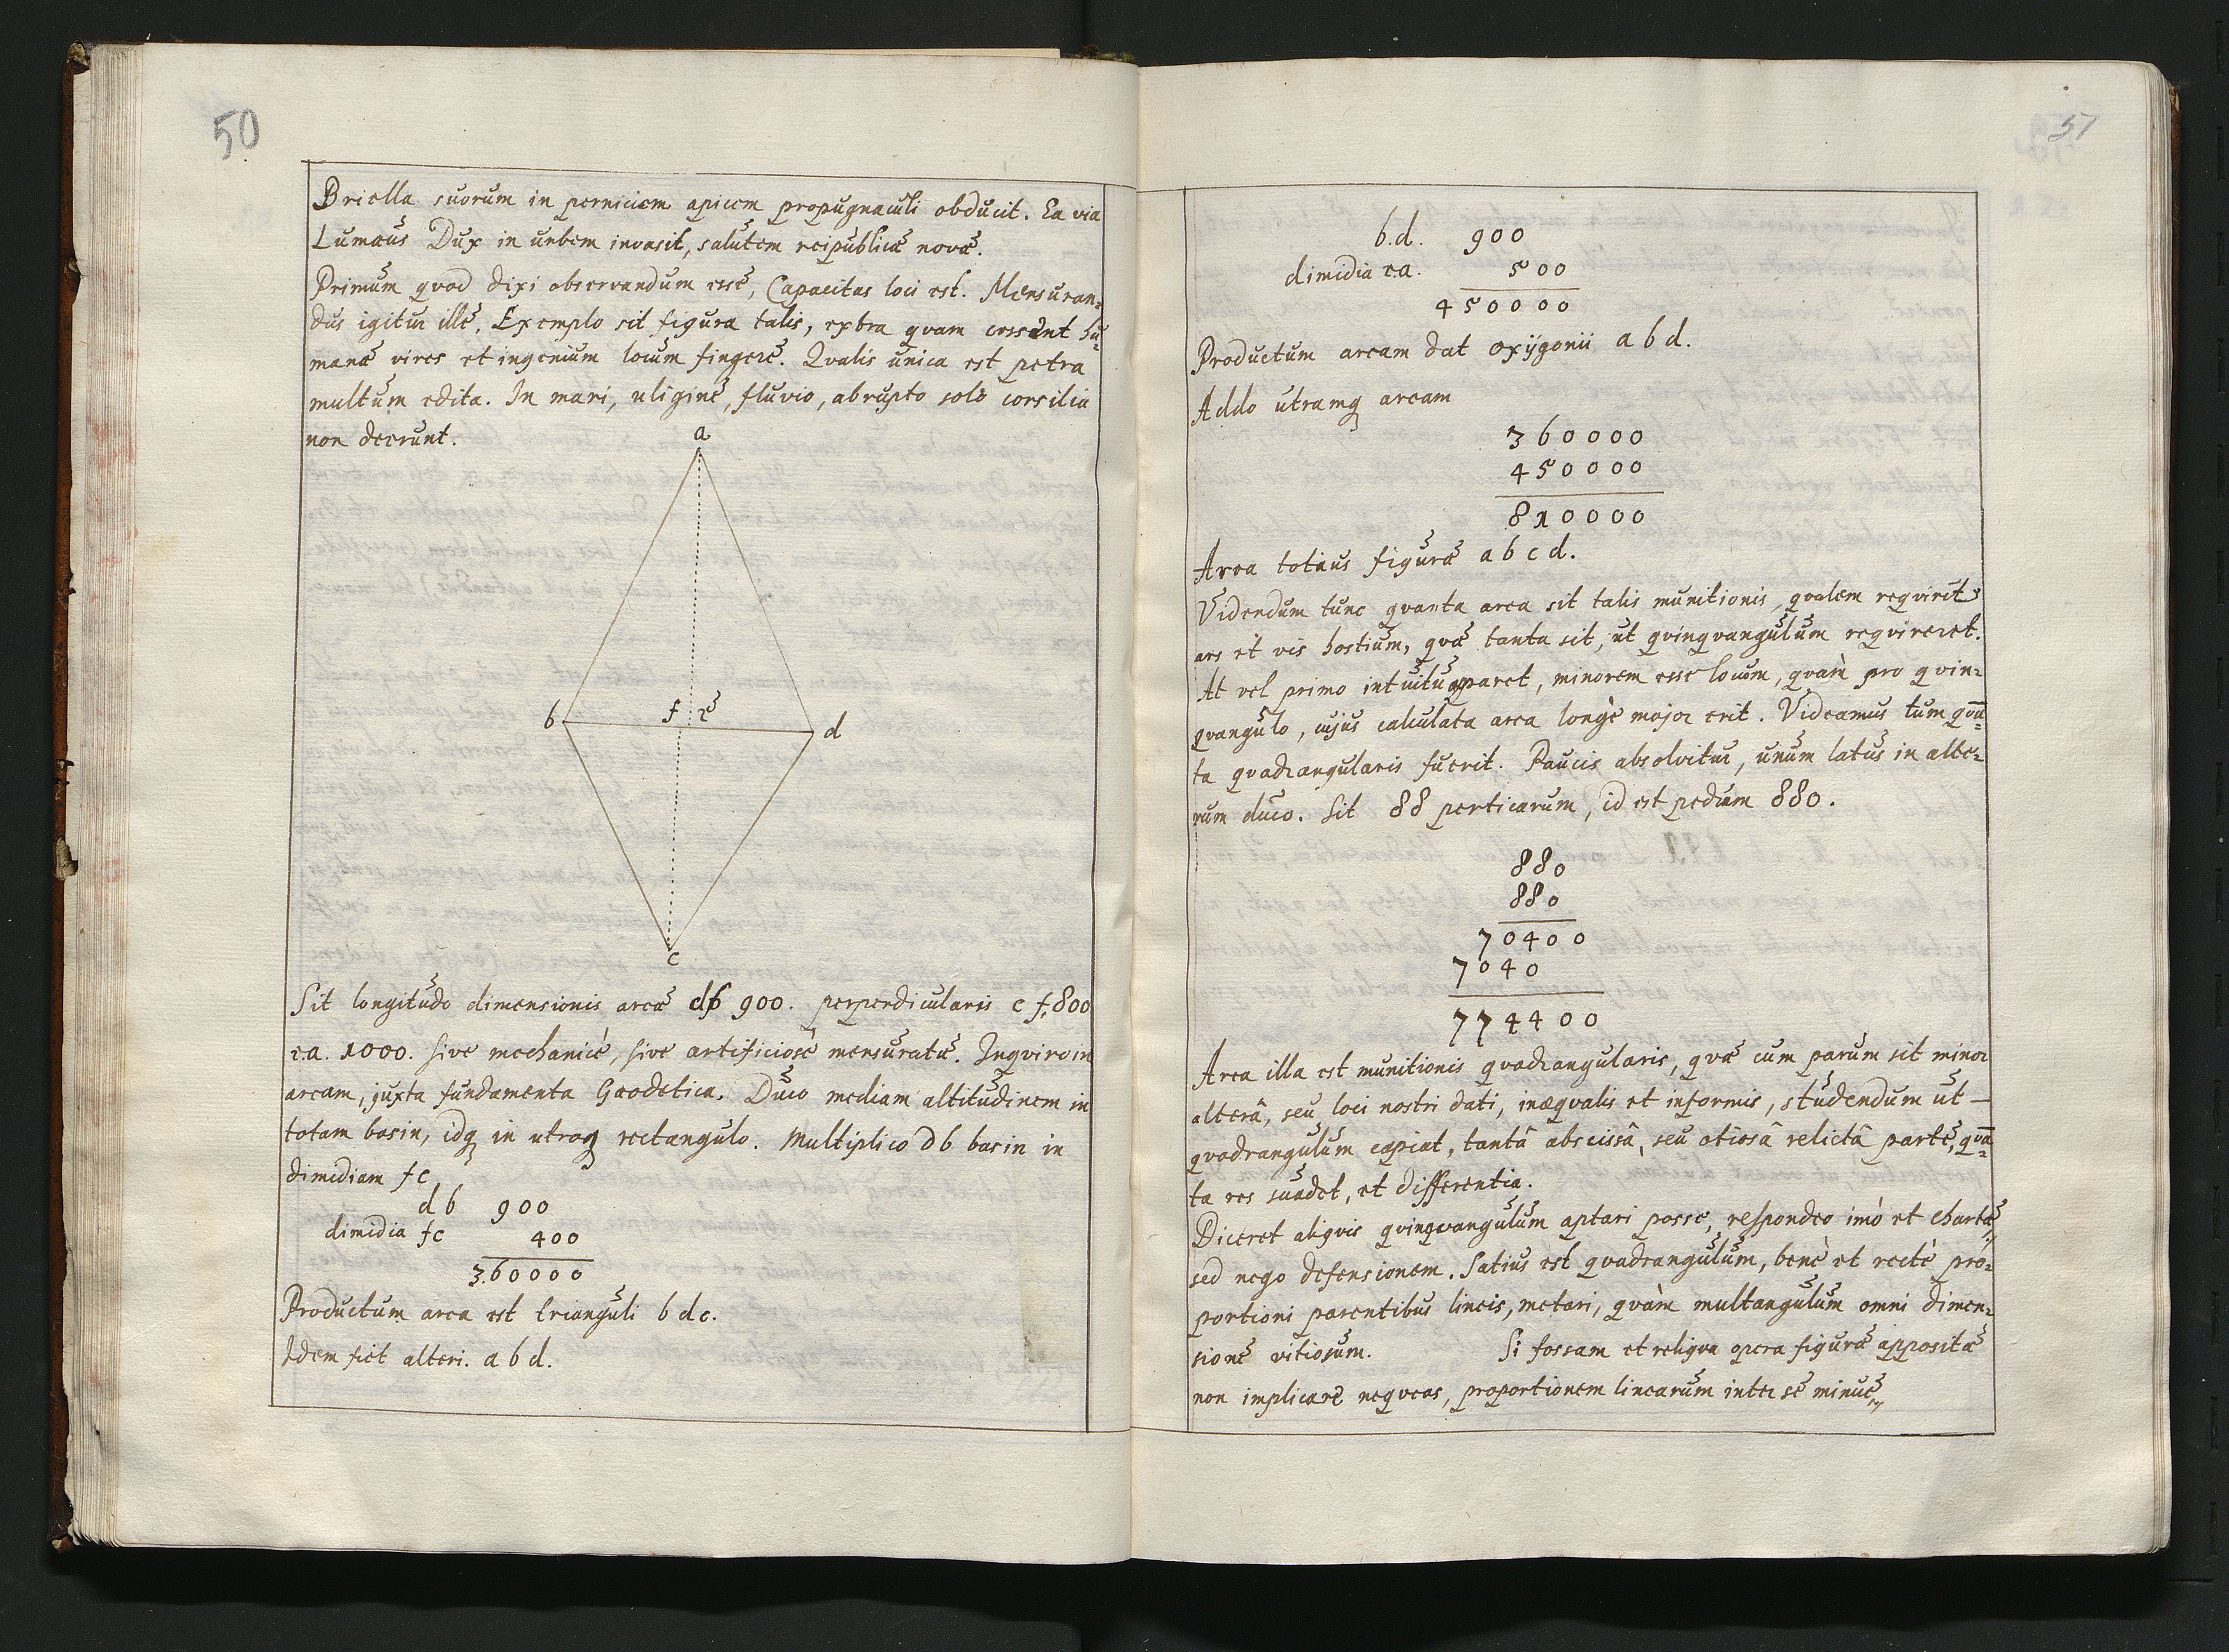 50
Briella suorum in perniciem apicem propugnaculi obducit. Ea via
Lumæus Dux in urbem invasit, salutem reipublicæ novæ.
Primum qvod dixi observandum esse, Capacitas loci est. Mensuran=
dus igitur ille. Exemplo sit figura talis, extra qvam cessent hu=
manæ vires et ingenium locum fingere. Qvalis unica est petra
multum edita. In mari, uligine, fluvio, abrupto solo consilia
non deerunt.
a
b f e d
c
Sit longitudo dimensionis areæ db 900. perpendicularis c f. 800
e.a. 1000. sive mechanicè, sive artificiosè mensuratæ. Inqviro in
aream, juxta fundamenta Geodetica. Duco mediam altitudinem in
totam basin, idq in utroq rectangulo. Multiplico db basin in
dimidiam fc
db 900
dimidia fc 400
360000
Productum area est trianguli b d c.
Idem fiet alteri. a b d.
51
b.d. 900
dimidia e.a. 500
450000
Productum aream dat oxÿgonii a b d.
Addo utramq aream
360000
450000
810000
Area totius figuræ a b c d.
Videndum tunc qvanta area sit talis munitionis, qvalem reqvirit
ars et vis hostium, qvæ tanta sit, ut qvinqvangulum reqvireret.
At vel primo intuitu apparet, minorem esse locum, qvàm pro qvin=
qvangulo, cujus calculata area longè major erit. Videamus tum qvā=
ta qvadrangularis fuerit. Paucis absolvitur, unum latus in alte=
rum duco. Sit 88 perticarum, id est pedum 880.
880
880
70400
7040
774400
Area illa est munitionis qvadrangularis, qvæ cum parum sit minor
alterâ, seu loci nostri dati, inæqvalis et informis, studendum ut
qvadrangulum capiat, tantâ abscissâ, seu otiosâ relictâ parte, qvā=
ta res suadet, et differentia.
Diceret aliqvis qvinqvangulum aptari posse, respondeo imò et chartæ,
sed nego defensionem. Satius est qvadrangulum, benè et rectè pro=
portioni parentibus lineis, metari, qvàm multangulum omni dimen=
sione vitiosum. Si fossam et reliqva opera figuræ appositæ
non implicare neqveas, proportionem linearum inter se minue,